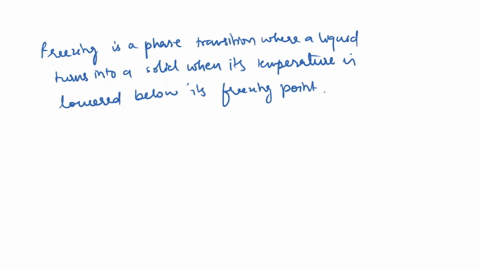 freezing is a phase transition where a liquid
turns into a solid when its temperature is
lowered below its freezing point.